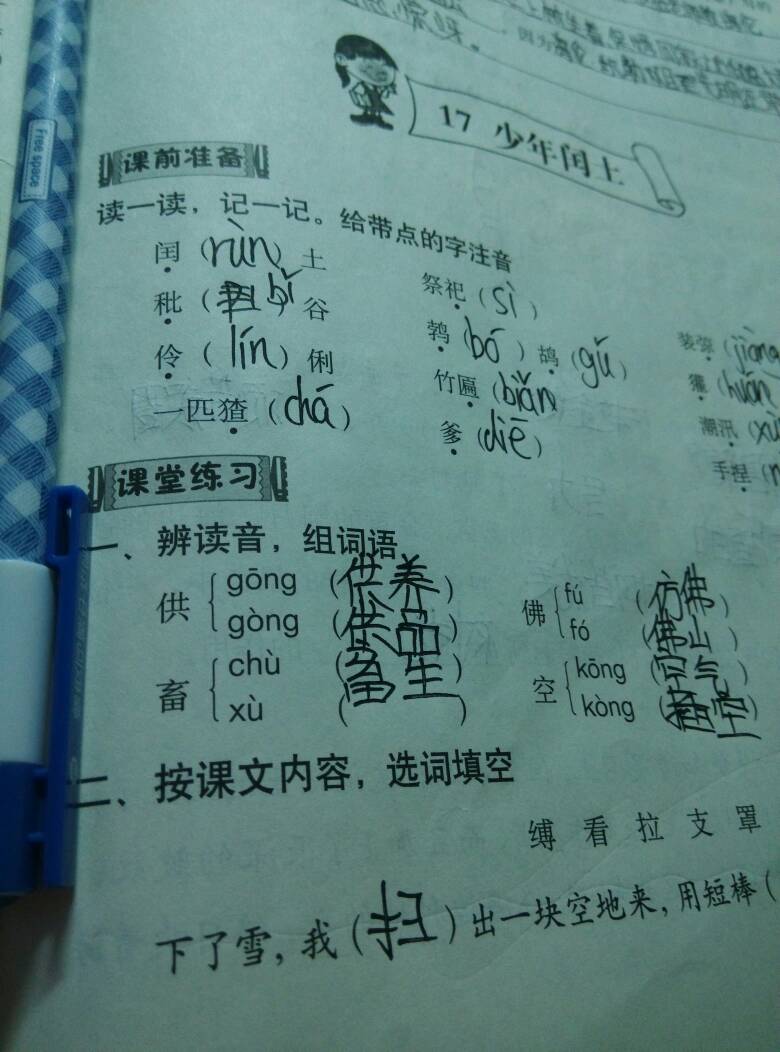 惊呀。
因为
Free space
17 少年闰土
课前准备
读一读，记一记。给带点的字注音
闰（rùn）土
秕（bǐ）谷 祭祀（sì）
伶（lín）俐 鹁（bó）鸪（gū） 装弶（jiàng
一匹猹（chá） 竹匾（biǎn 獾（huān
爹（diē） 潮汛（xù
手捏（n
课堂练习
一、辨读音，组词语
供 gōng（供养） 佛 fú（仿佛）
gòng（供品） fó（佛山）
畜 chù（畜生） 空 kōng（空气）
xù（ ） kòng（空）
二、按课文内容，选词填空
缚 看 拉 支 罩
下了雪，我（扫）出一块空地来，用短棒（